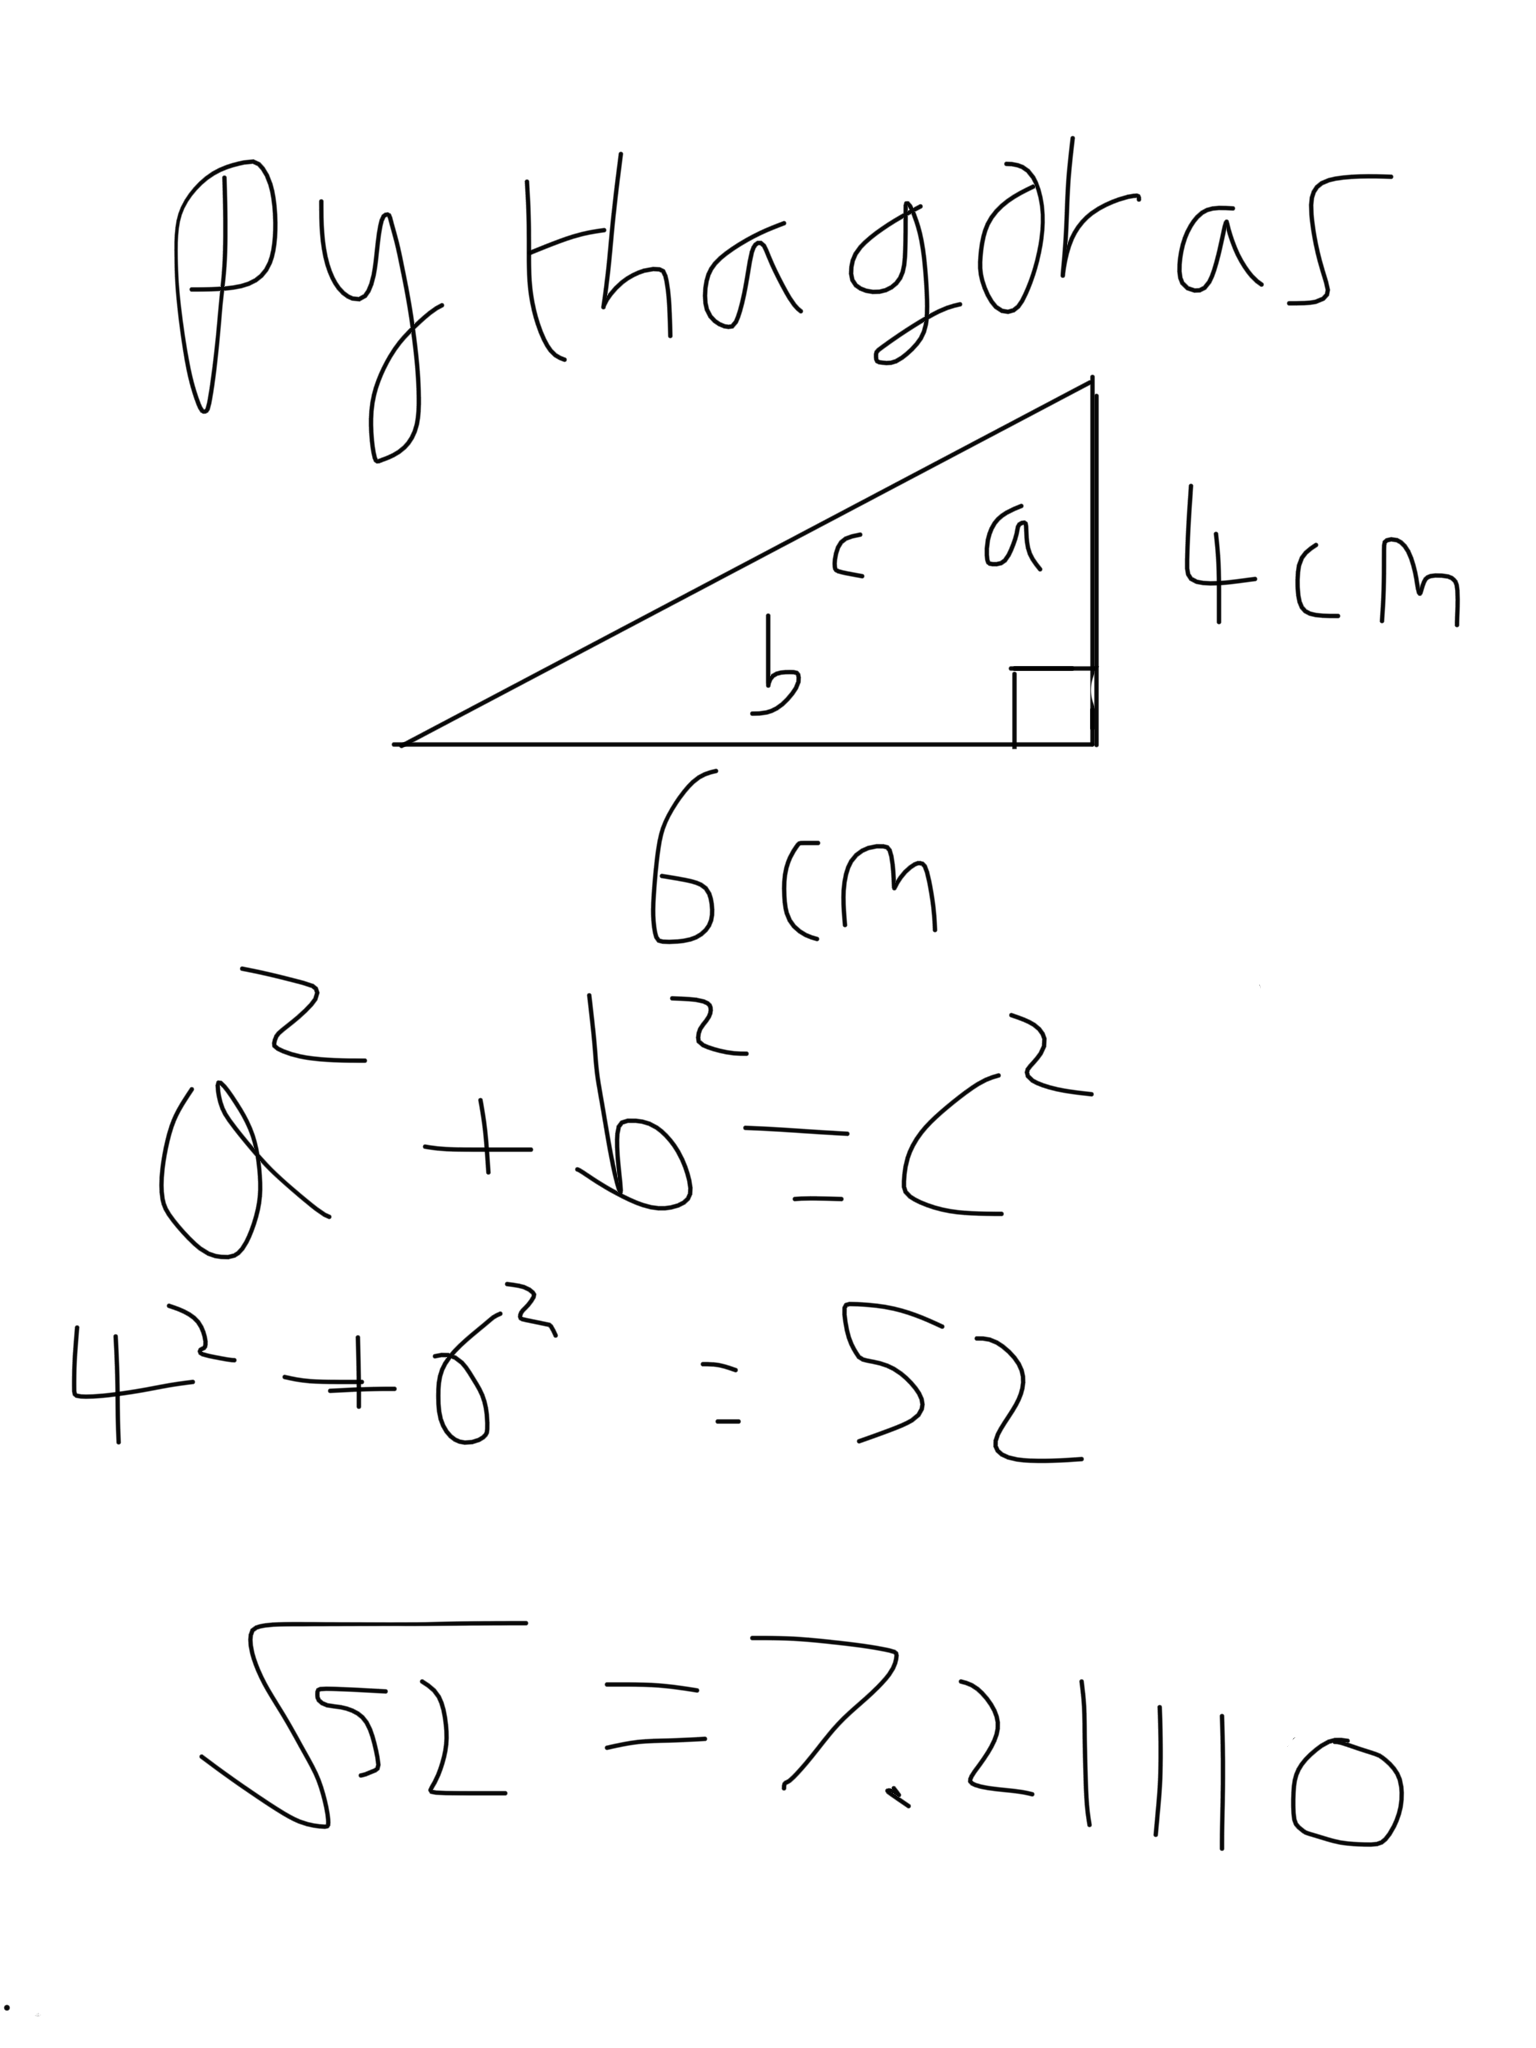 Pythagoras
c a 4cm
b
6cm
a² + b² = c²
4² + 6² = 52
√52 = 7.21110